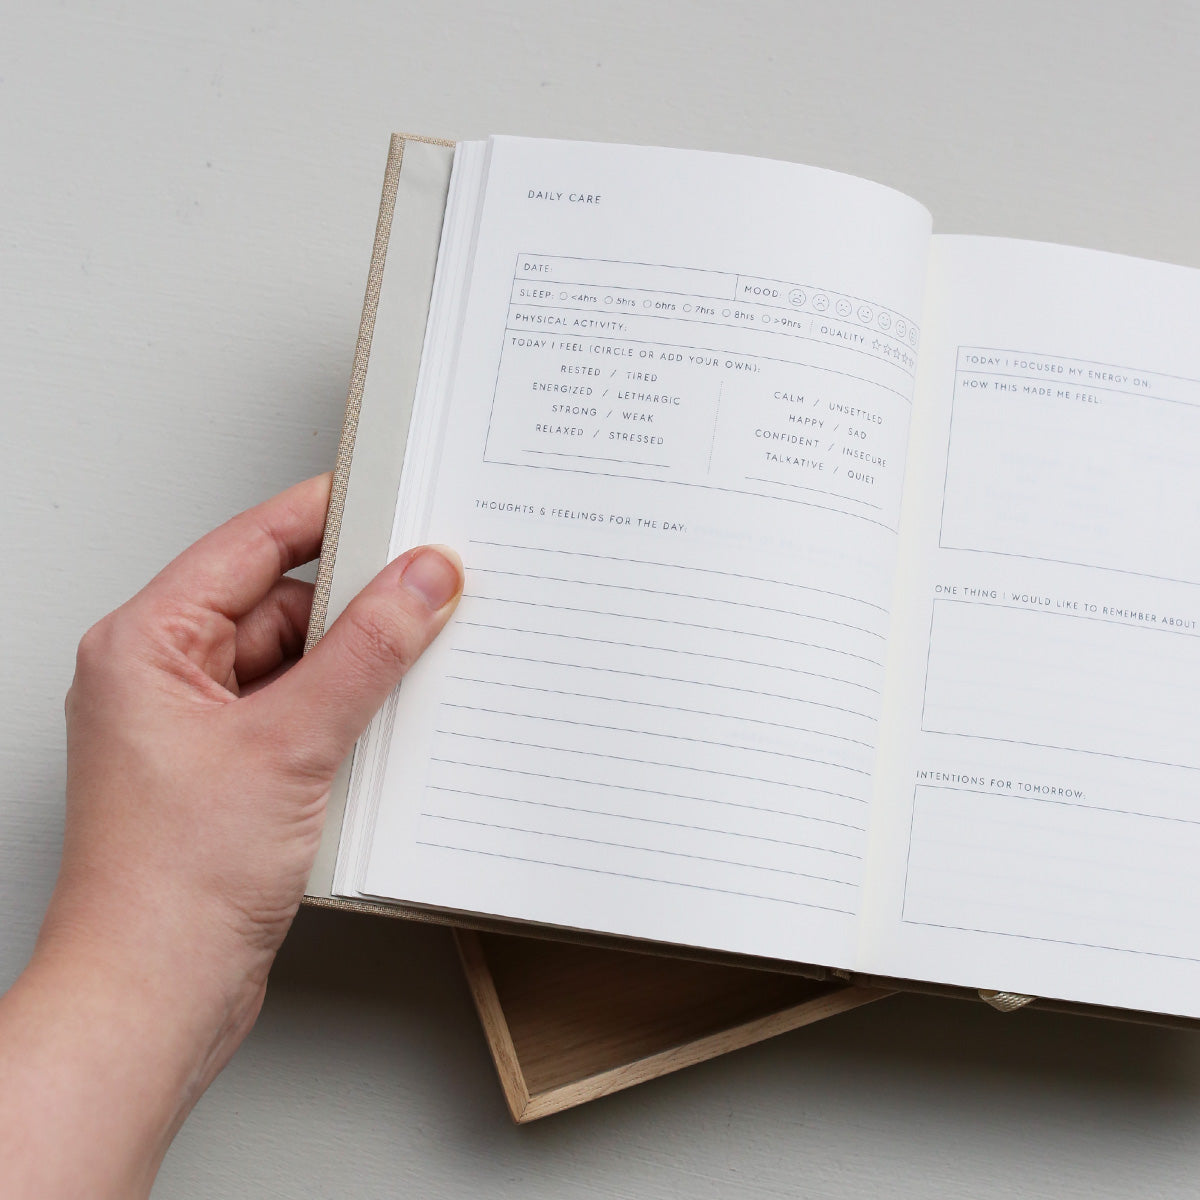 DAILY CARE
DATE:
MOOD:
SLEEP: <4hrs 5hrs 6hrs 7hrs 8hrs >9hrs QUALITY:
PHYSICAL ACTIVITY:
TODAY I FEEL (CIRCLE OR ADD YOUR OWN):
RESTED / TIRED
ENERGIZED / LETHARGIC
STRONG / WEAK
RELAXED / STRESSED
CALM / UNSETTLED
HAPPY / SAD
CONFIDENT / INSECURE
TALKATIVE / QUIET
THOUGHTS & FEELINGS FOR THE DAY:
TODAY I FOCUSED MY ENERGY ON:
HOW THIS MADE ME FEEL:
ONE THING I WOULD LIKE TO REMEMBER ABOUT
INTENTIONS FOR TOMORROW: